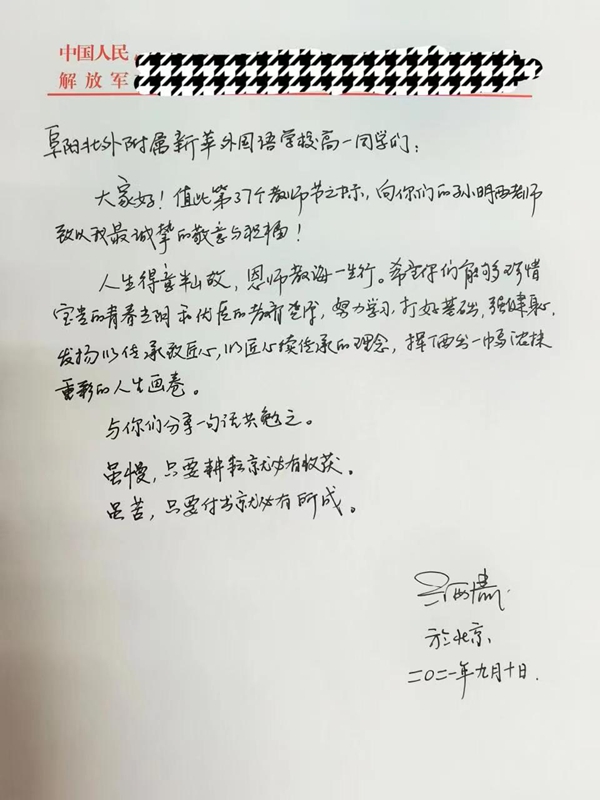 中国人民
解放军
阜阳北外附属新华外国语学校高一同学们：
大家好！值此第37个教师节之际，向你们的孙明西老师
致以我最诚挚的敬意与祝福！
人生得意半山故，恩师教诲一生行。希望你们能够珍惜
宝贵的青春光阴和优质的教育，努力学习，打好基础，强健
发扬以传承致匠心，以匠心续传承的理念，挥洒出一幅浓抹
重彩的人生画卷。
与你们分享一句话共勉之。
虽慢，只要耕耘就必有收获。
虽苦，只要付出就必有所成。
于北京
二〇二一年九月十日.